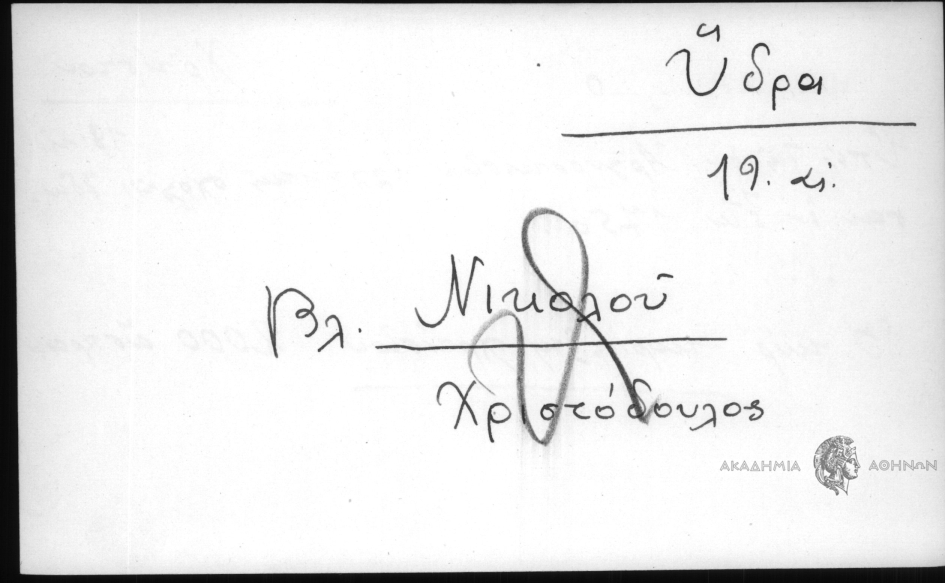 Ὕδρα
19. αἰ.
Βλ. Νικολοῦ
Χριστόδουλος
ΑΚΑΔΗΜΙΑ ΑΘΗΝΩΝ